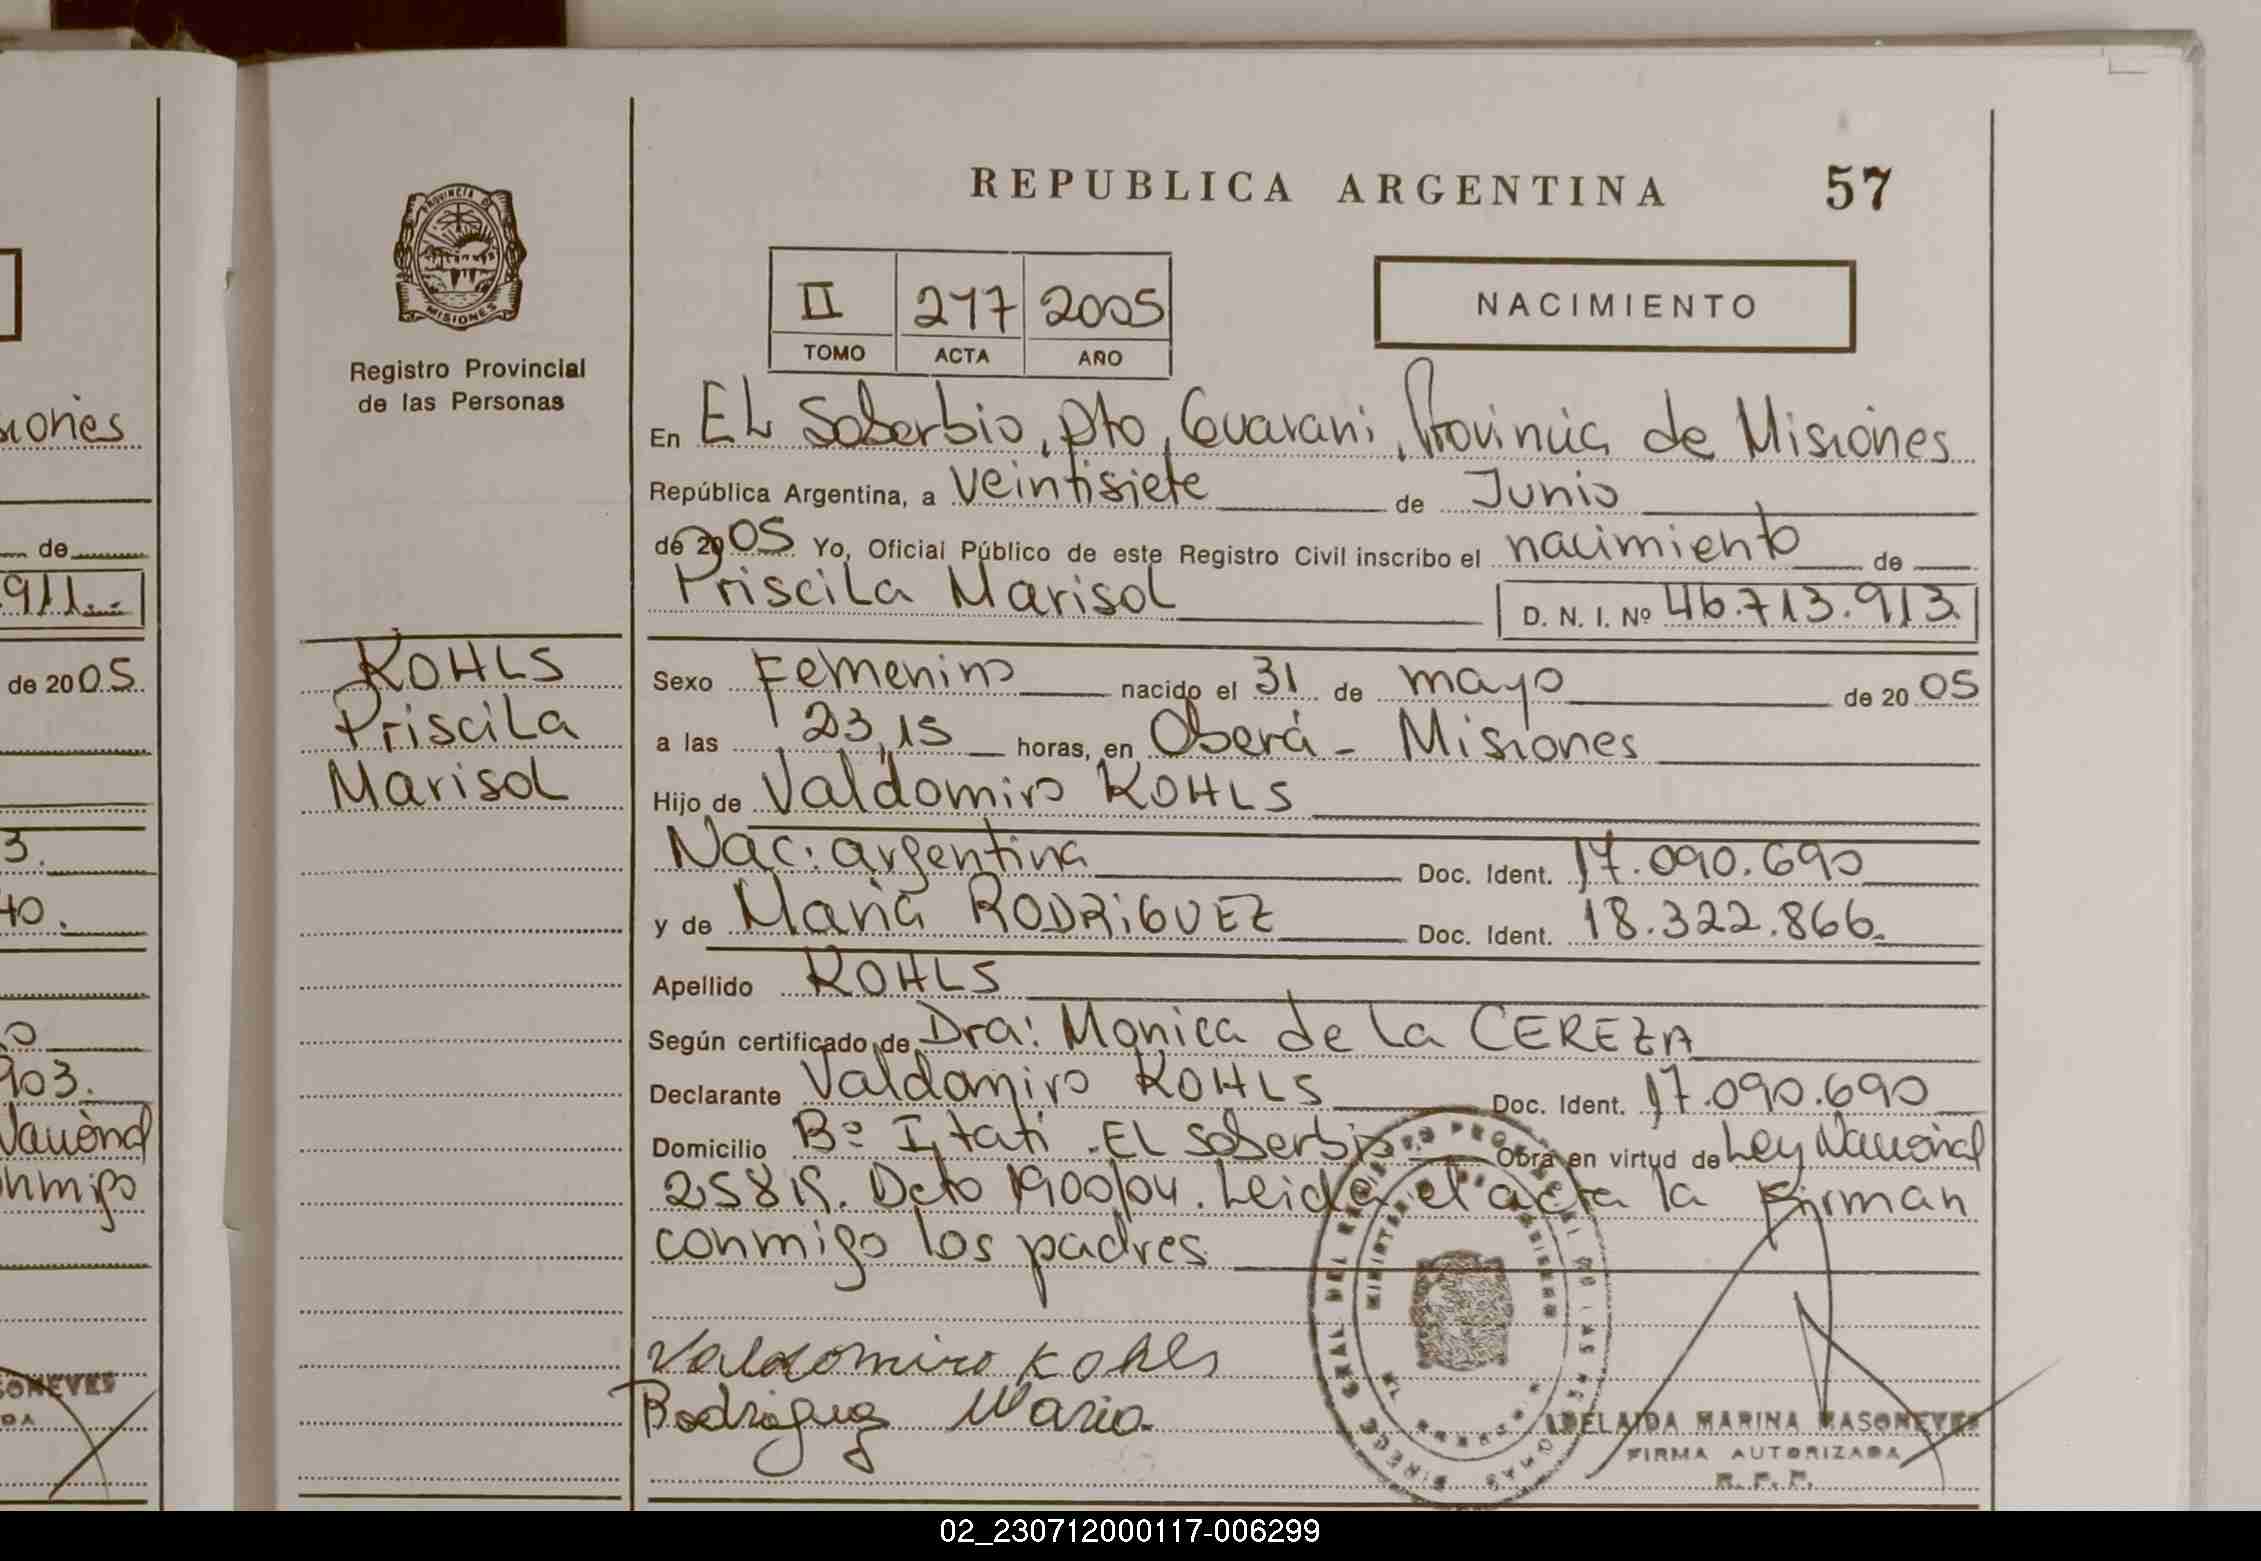 iones
de
911.
de 2005
3.
40.
903.
Nacional
conmigo
PROVINCIA DE
MISIONES
Registro Provincial
de las Personas
KOHLS
Priscila
Marisol
REPUBLICA ARGENTINA 57
II 277 2005
TOMO ACTA AÑO
NACIMIENTO
En EL Soberbio, Dto, Guarani, Provincia de Misiones
República Argentina, a veintisiete de Junio
de 2005 Yo, Oficial Público de este Registro Civil inscribo el nacimiento de
Priscila Marisol D. N. I. Nº 46.713.913.
Sexo Femenino nacido el 31 de mayo de 2005
a las 23,15 horas, en Oberá - Misiones
Hijo de Valdomiro KOHLS
Nac: argentina Doc. Ident. 17.090.690
y de Maria RODRIGUEZ Doc. Ident. 18.322.866.
Apellido KOHLS
Según certificado de Dra: Monica de la CEREZA
Declarante Valdomiro KOHLS Doc. Ident. 17.090.690
Domicilio Bº Itati - EL Soberbio Obra en virtud de Ley Nacional
25819. Dcto 1900/04. Leida el acta la firman
conmigo los padres
Valdomiro Kohls
Rodriguez Maria
ADELAIDA MARINA MASONEVES
FIRMA AUTORIZADA
R. P. P.
02_230712000117-006299